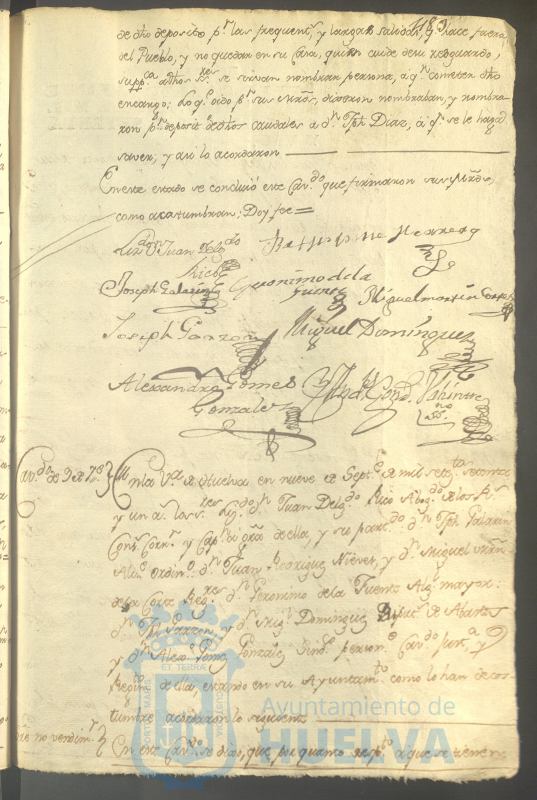 de dho deposito pr. las frequentes, y largas salidas, q. hace fuera
del Pueblo, y no quedar en su Casa, quien cuide de su resguardo,
suppca. a dhos sres. se sirvan nombrar persona, a qn. cometer dho
encargo: Lo q. oido pr. sus mrds. dixeron nombraban, y nombra-
ron pr. deposit. de dhos caudales a dn. Jph. Diaz, a qn. se le haga
saver; y asi lo acordaron
En este estado se concluió este Cavdo. que firmaron sus Mrds.
como acostumbran; Doy fee=
Lizdo. Dn. Juan Delgdo.
Rico
Joseph Palarin
Geronimo de la
Fuente
Miguel martin
Joseph Garzon
Miguel Dominguez
Alexandro Gomez
Gonzalez
Cavdo. de 9 de 7re.
En la Va. de Huelva en nueve de Septe. de mil setoz. sesenta
y un as. los sres. Lizdo. dn. Juan Delgdo. Rico Abogdo. de los Rs.
Cons. Corrr. y Capn. a gra. de ella, y su partdo. dn. Jph. Palarin
Alce. ordino. dn. Juan Rodriguez Nieves, y dn. Miguel
de la Corte Regres. dn. Geronimo de la Fuente Algl. mayor:
dn. Jph. Garzon, y dn. Migl. Dominguez Diput. de Abastos
y dn. Alexo. Gomez Gonzalez Sindo. person. Cavdo. Justa. y
Regimto. de ella, estando en su Ayuntamto. como lo han de cos-
tumbre acordaron lo siguiente
no vendim
En este Cavdo. se dixo, que por quanto respto. a que se tiene
ET TERRA
PORTUS MARIS
Ayuntamiento de
HUELVA